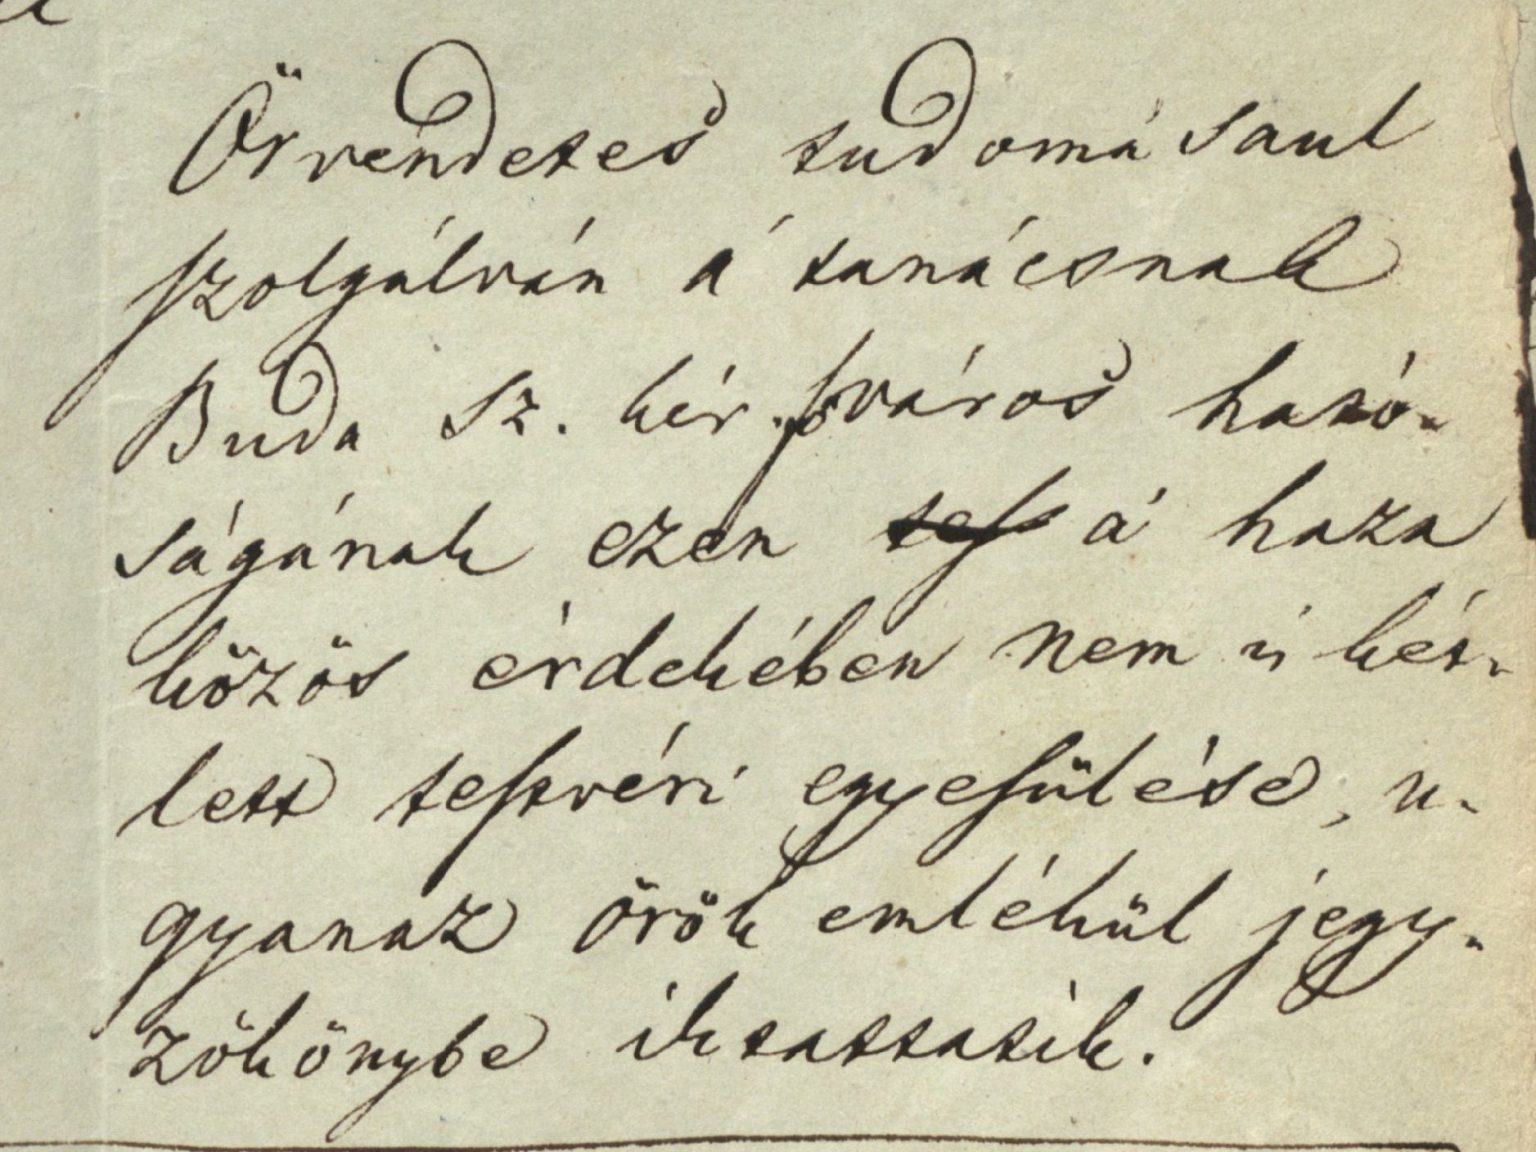 Örvendetes tudomásaul
szolgálván á tanácsnak
Buda sz. kir. főváros ható-
ságának ezen tes á haza
közös érdekében nem is két-
lett testvéri egyesülése, u-
gyanaz örök emlékül jegy-
zökönybe iktattatik.